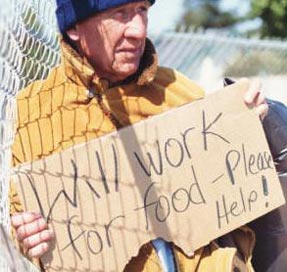 Will work
for food - Please
Help!